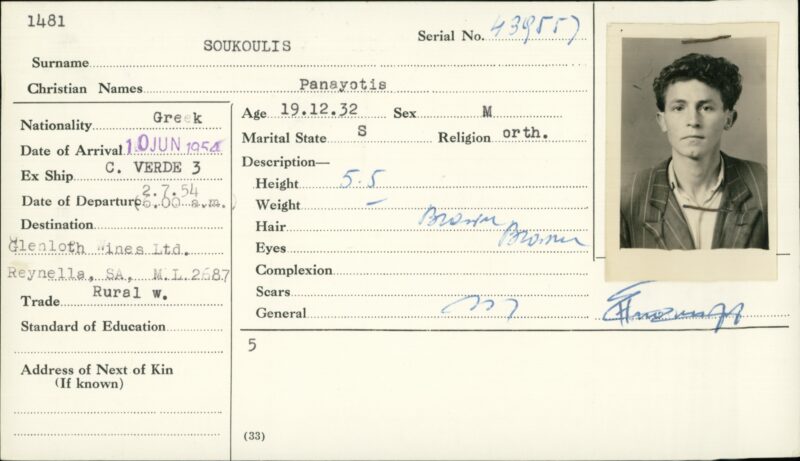 1481
SOUKOULIS
Serial No. 439557
Surname
Christian Names Panayotis
Nationality Greek
Date of Arrival 10 JUN 1954
Ex Ship C. VERDE 3
Date of Departure 2.7.54
(6.00 a.m.)
Destination
Glenloth Wines Ltd.
Reynella, SA, M.L. 2687
Trade Rural w.
Standard of Education
Address of Next of Kin
(If known)
Age 19.12.32 Sex M
Marital State S Religion orth.
Description—
Height 5.5
Weight –
Hair Brown
Eyes Brown
Complexion
Scars
General
5
(33)